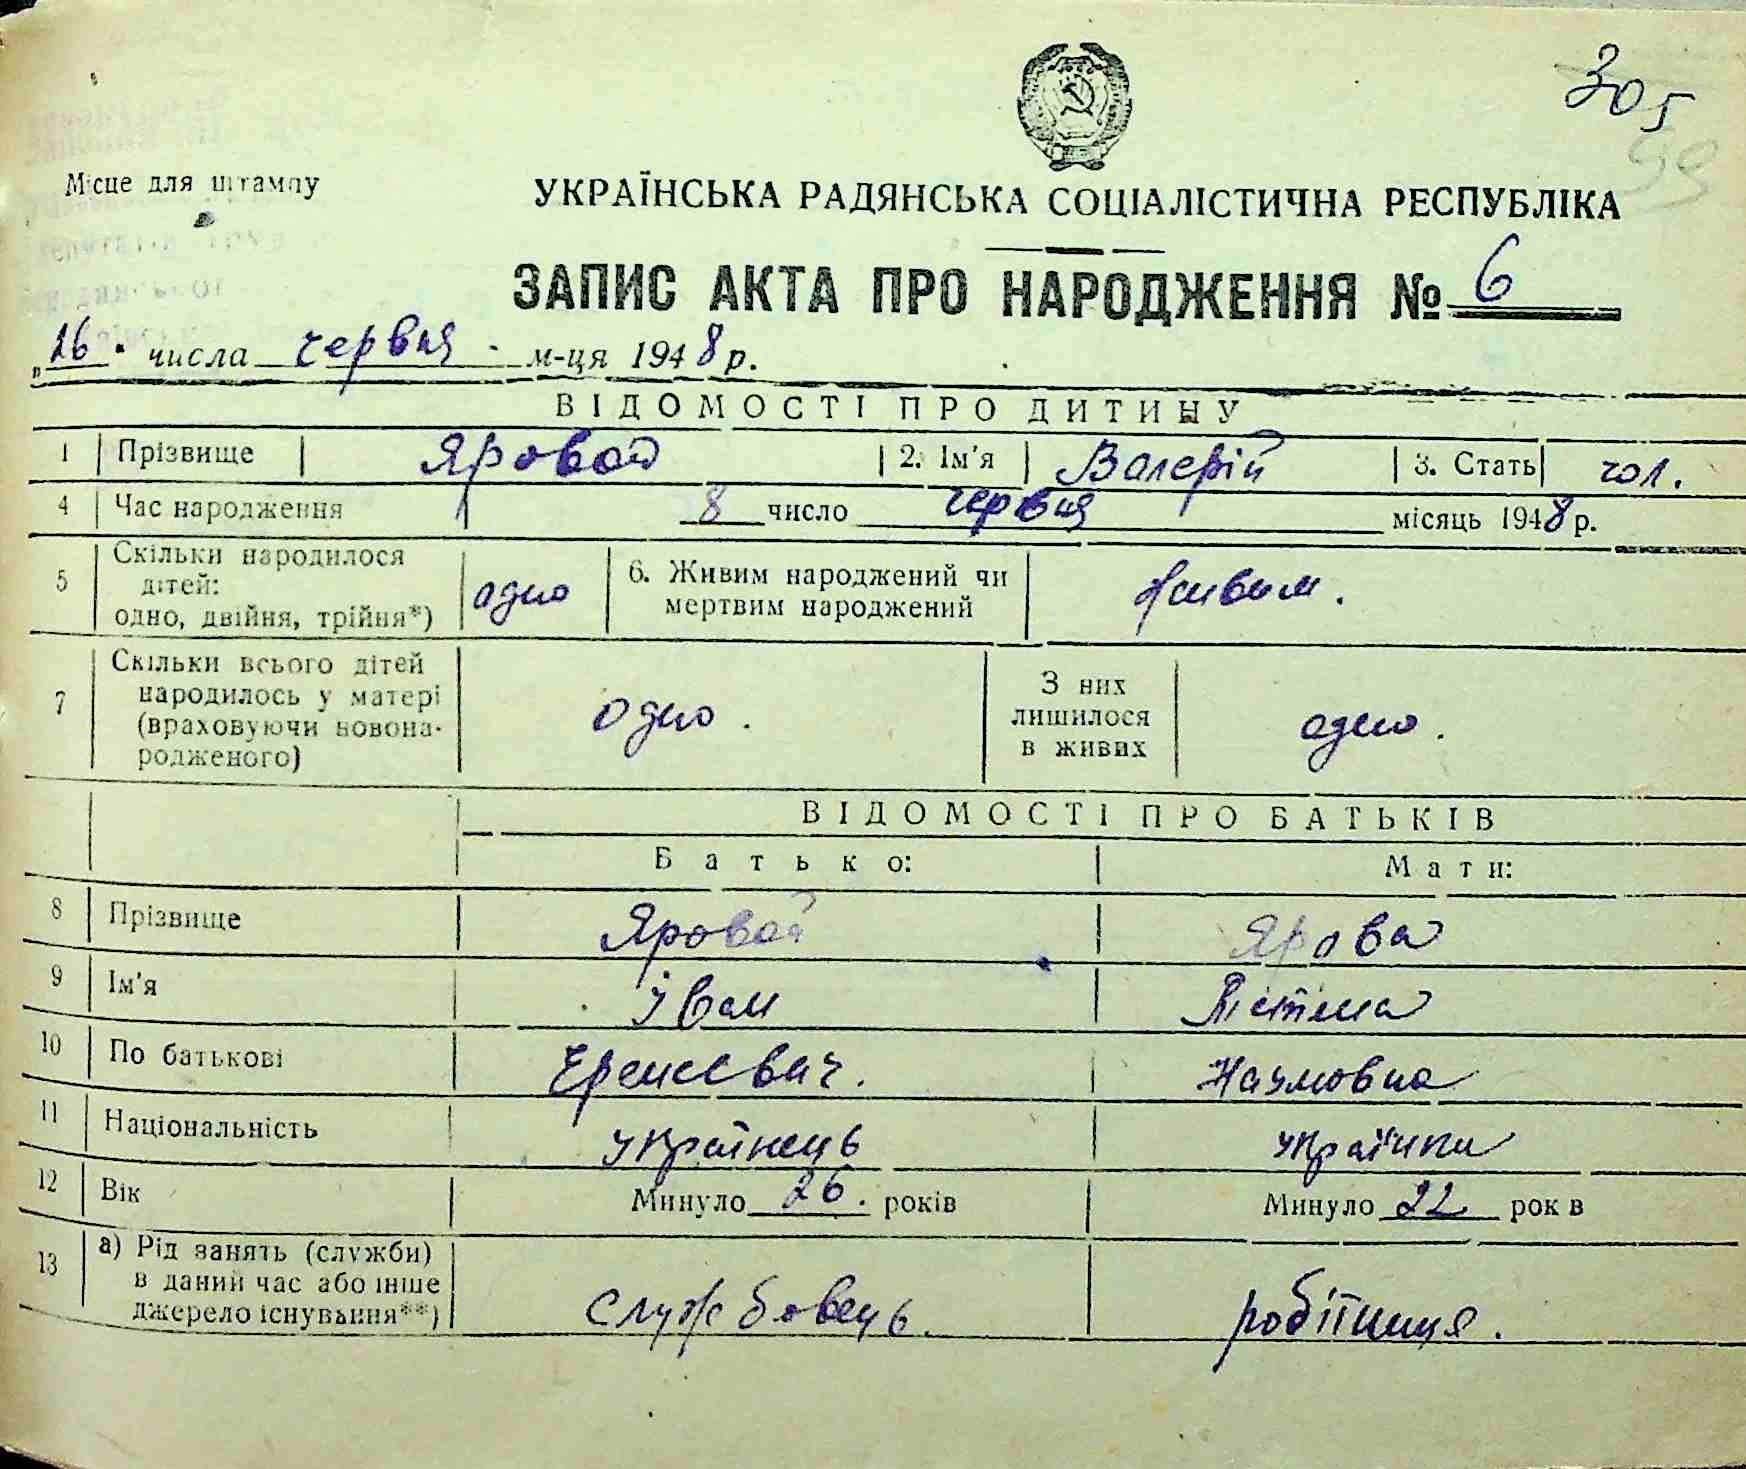 305
99
Місце для штампу
УКРАЇНСЬКА РАДЯНСЬКА СОЦІАЛІСТИЧНА РЕСПУБЛІКА
ЗАПИС АКТА ПРО НАРОДЖЕННЯ № 6
„26" числа червня м-ця 1948 р.
ВІДОМОСТІ ПРО ДИТИНУ
1 Прізвище Яровой 2. Ім'я Валерій 3. Стать чол.
4 Час народження 8 число червня місяць 1948 р.
5 Скільки народилося дітей: одно, двійня, трійня*) одно 6. Живим народжений чи мертвим народжений Живим.
7 Скільки всього дітей народилось у матері (враховуючи новонародженого) одно. З них лишилося в живих одно.
ВІДОМОСТІ ПРО БАТЬКІВ
Батько: Мати:
8 Прізвище Яровой Ярова
9 Ім'я Іван
10 По батькові Наумовна
11 Національність українець українка
12 Вік Минуло 26. років Минуло 22 рок в
13 а) Рід занять (служби) в даний час або інше джерело існування**) службовець. робітниця.